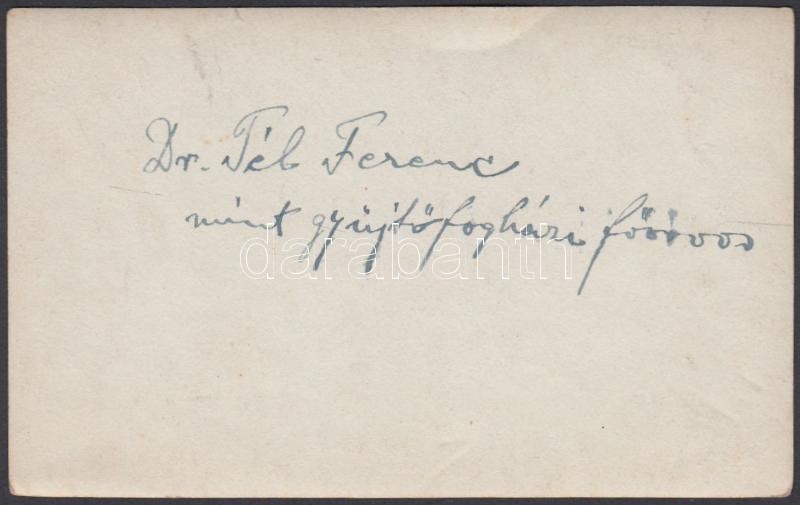 Dr. Tél Ferenc
mint gyüjtőfogházi főorvos
darabanth